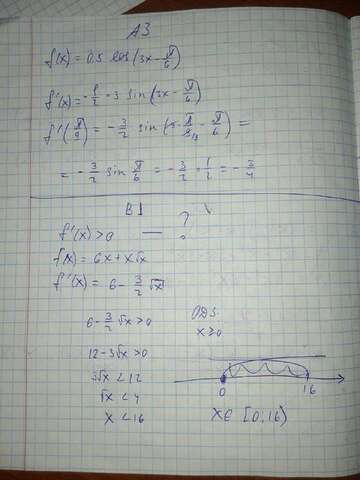 A3
f(x) = 0.5 cos(3x - π/6)
f'(x) = -1/2 · 3 sin(3x - π/6)
f'(π/9) = -3/2 sin(3 · π/9 - π/6) =
= -3/2 sin π/6 = -3/2 · 1/2 = -3/4
B1
f'(x) > 0 — ?
f(x) = 6x + x√x
f'(x) = 6 - 3/2 √x
6 - 3/2 √x > 0
ODS.
x ≥ 0
12 - 3√x > 0
3√x < 12
√x < 4
x < 16
0 16
x ∈ [0, 16)